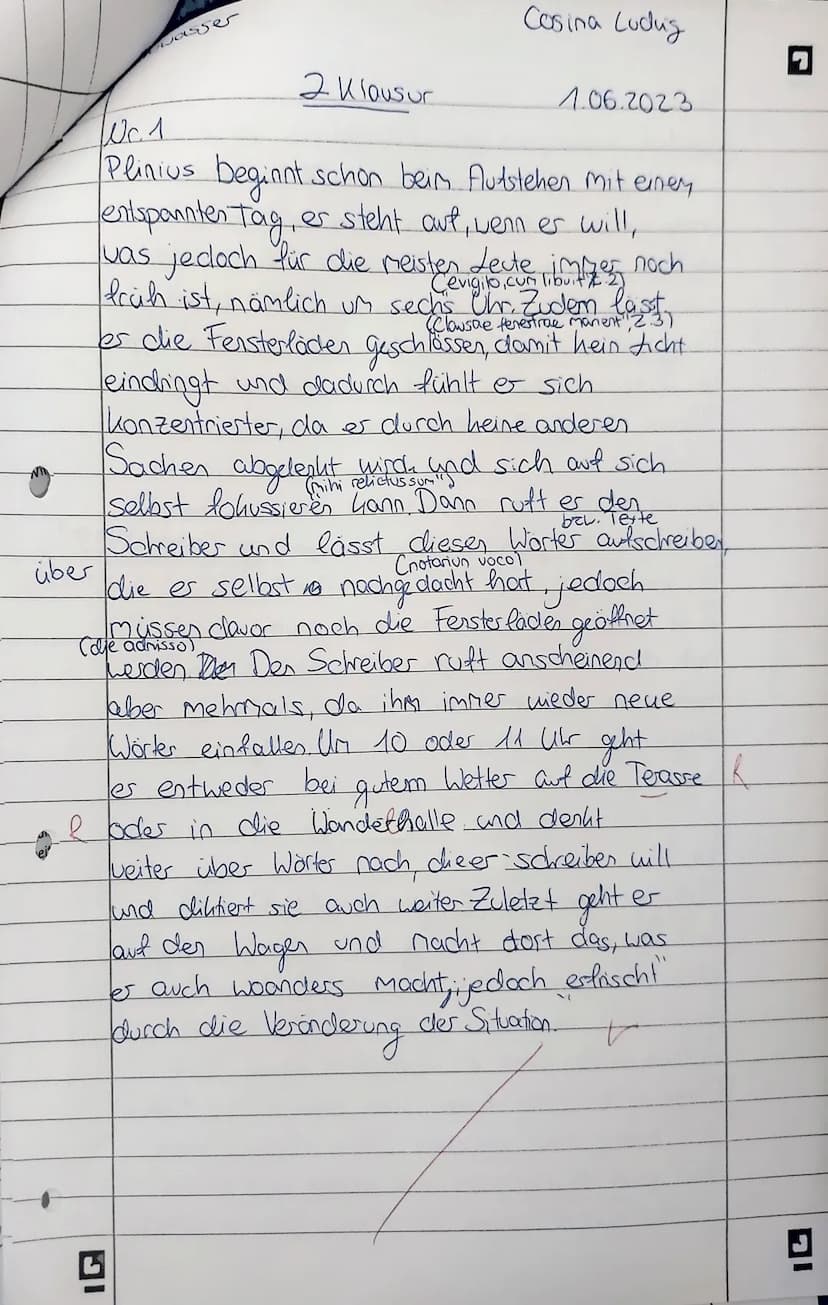 wasser
Cosina Ludwig
2 Klausur
1.06.2023
Nr. 1
Plinius beginnt schon beim Aufstehen mit einem
entspannten Tag, er steht auf, wenn er will,
was jedoch für die meisten Leute immer noch
("evigilo, cum libuit", Z. 2)
früh ist, nämlich um sechs Uhr. Zudem lässt
("Clausae fenestrae manent", Z 3)
er die Fensterläden geschlossen, damit kein Licht
eindringt und dadurch fühlt er sich
konzentrierter, da er durch keine anderen
Sachen abgelenkt wird und sich auf sich
(mihi relictus sum")
selbst fokussieren kann. Dann ruft er den
bzw. Texte
Schreiber und lässt diesen Wörter aufschreiben,
über
(notarium voco)
die er selbst nachgedacht hat, jedoch
müssen davor noch die Fensterläden geöffnet
(die admisso)
werden. Den Schreiber ruft anscheinend
aber mehrmals, da ihm immer wieder neue
Wörter einfallen. Um 10 oder 11 Uhr geht
er entweder bei gutem Wetter auf die Terasse R
R oder in die Wandelhalle und denkt
weiter über Wörter nach, die er schreiben will
und diktiert sie auch weiter. Zuletzt geht er
auf den Wagen und macht dort das, was
er auch woanders macht, jedoch "erfrischt"
durch die Veränderung der Situation.